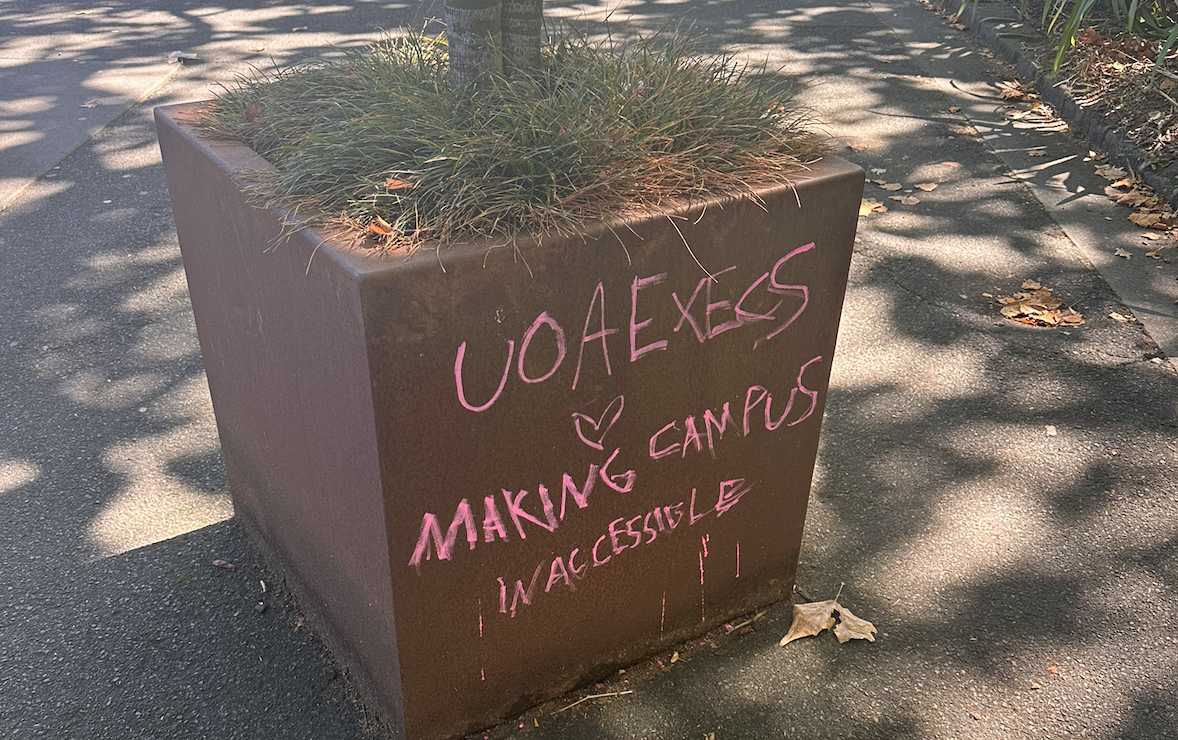 UOA EXECS
♡
MAKING CAMPUS
INACCESSIBLE